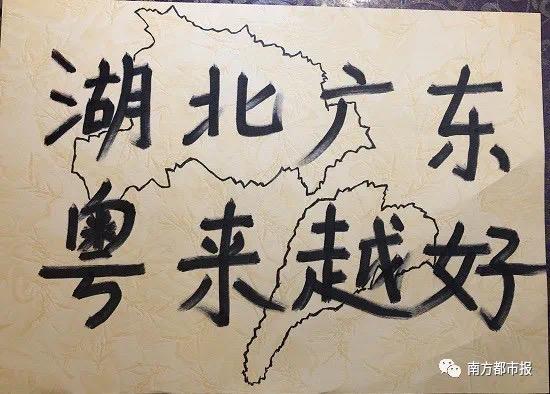 湖北广东
粤来越好
南方都市报